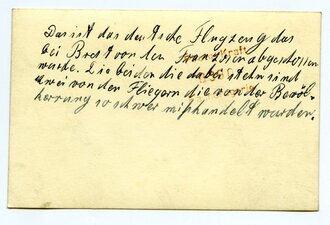 Das ist das deutsche Flugzeug das
bei Brest von den Franzosen abgeschossen
wurde. Die beiden die dabei stehn sind
zwei von den Fliegern die von der Bevöl-
kerrung so schwer mißhandelt wurden.